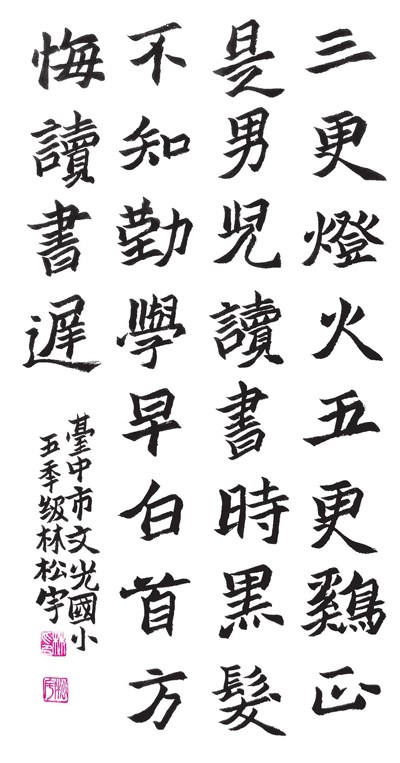 三更燈火五更鷄正
是男児讀書時黒髮
不知勤學早白首方
悔讀書遲
臺中市文光國小
五年級林松宇